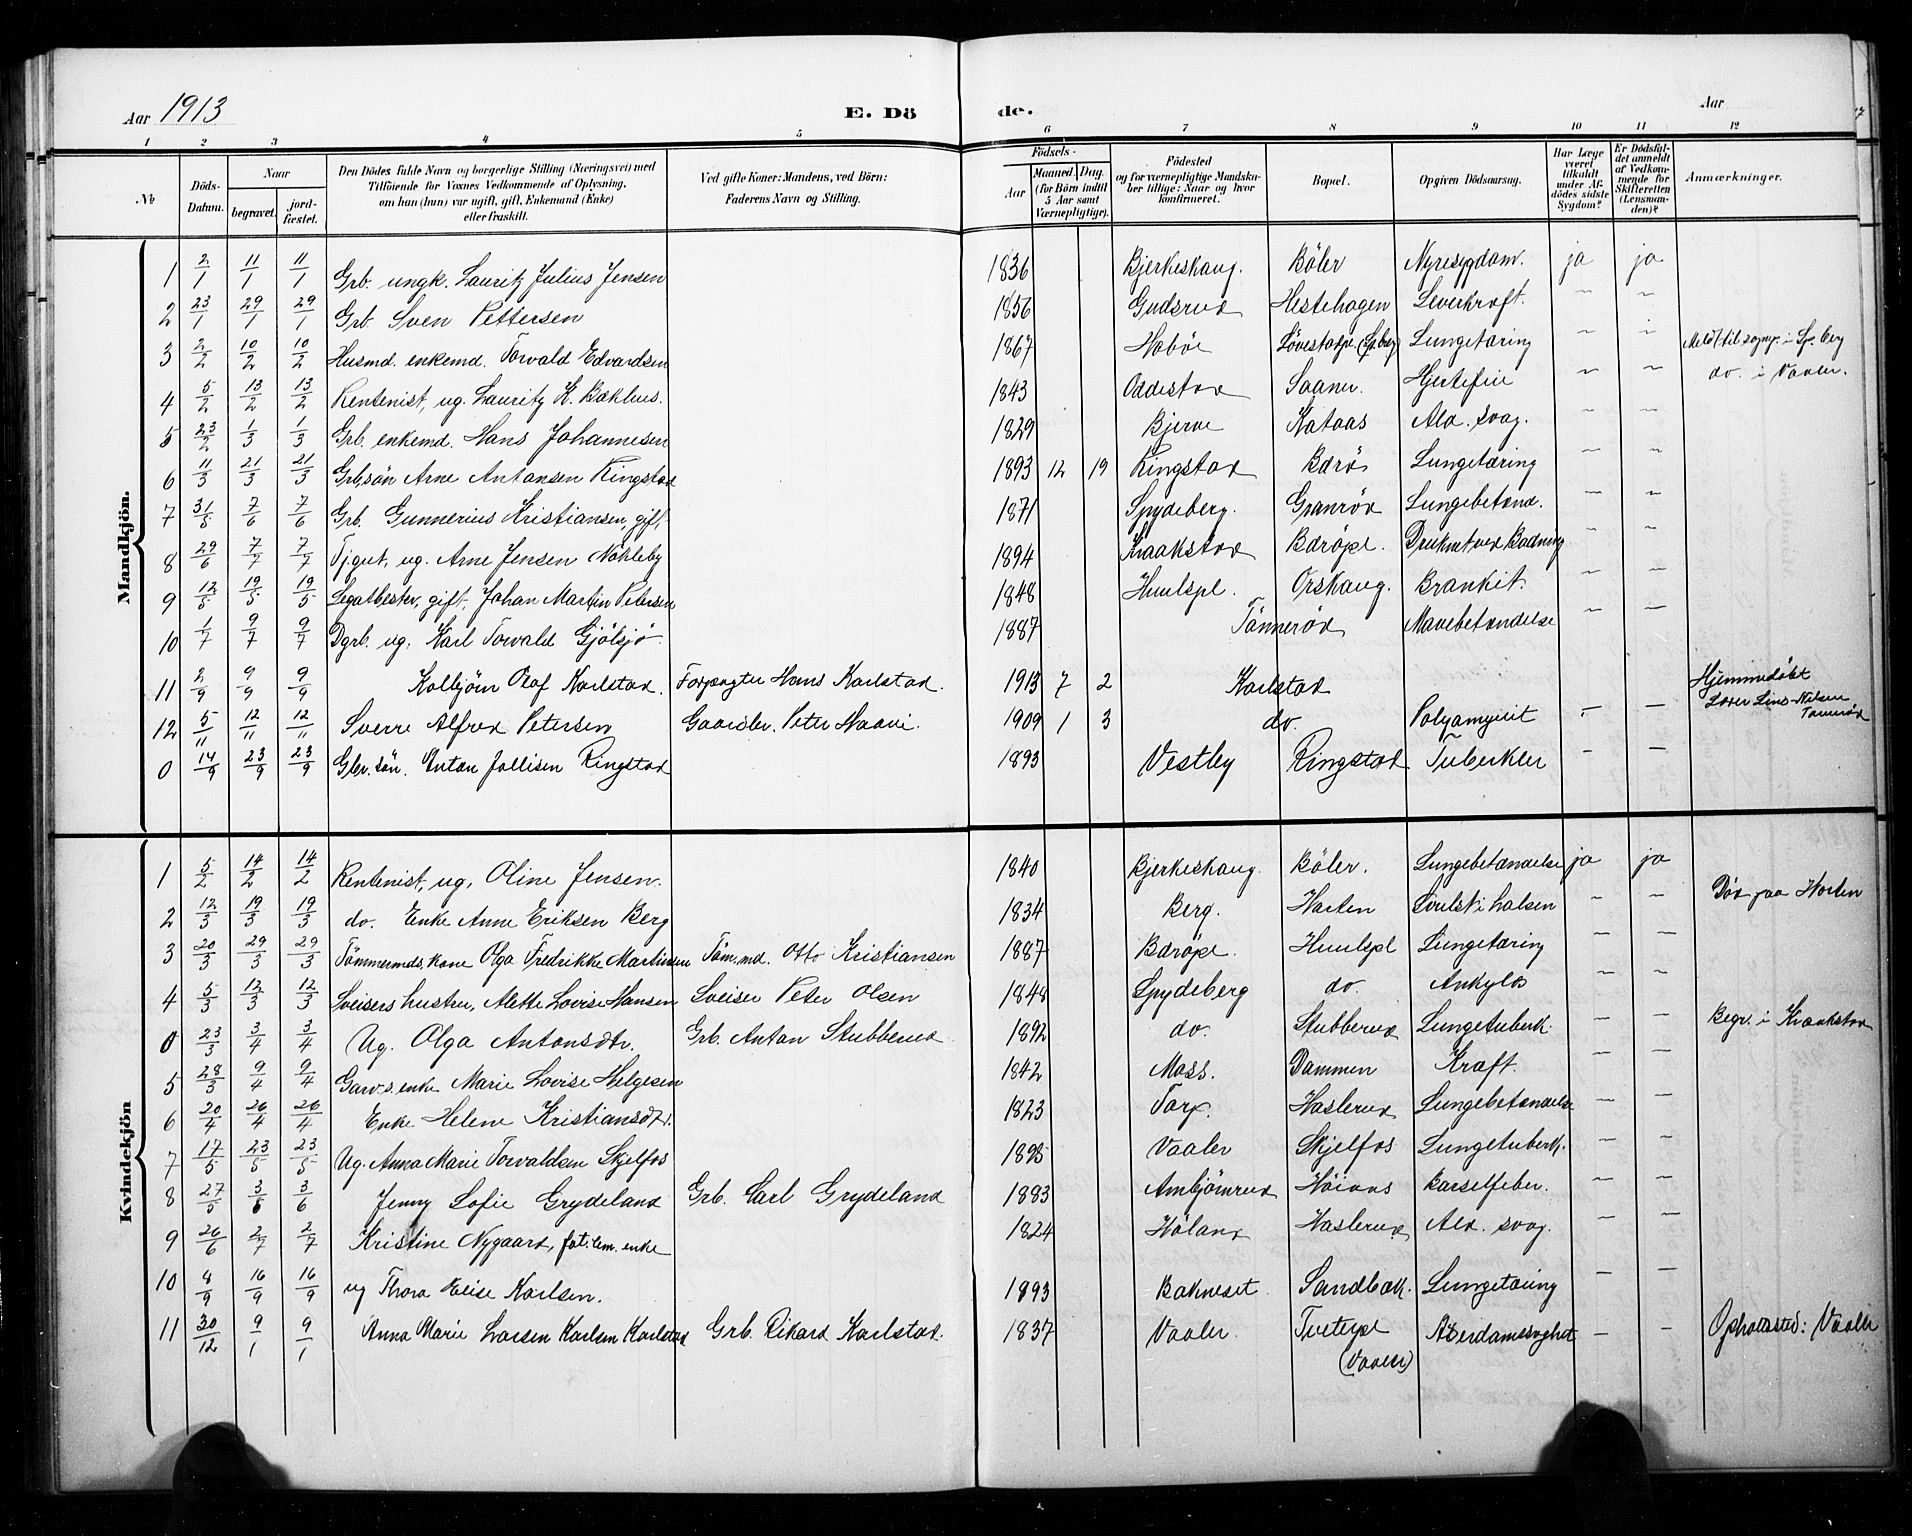 Aar 1913 E. Dö de. Aar
1 2 3 4 5 6 7 8 9 10 11 12
No Döds-Datum. Naar begravet. jord-fæstet. Den Dödes fulde Navn og borgerlige Stilling (Næringsvei) med Tilföiende for Voxnes Vedkommende af Oplysning, om han (hun) var ugift, gift, Enkemand (Enke) eller fraskilt. Ved gifte Koner: Mandens, ved Börn: Faderens Navn og Stilling. Födsels- Aar Maaned. Dag. (for Börn indtil 5 Aar samt Værnepligtige). Födested og for værnepligtige Mandskaber tillige: Naar og hvor konfirmeret. Bopæl. Opgiven Dödsaarsag. Har Læge været tilkaldt under Afdödes sidste Sygdom? Er Dödsfaldet anmeldt af Vedkommende for Skifteretten (Lensmanden)? Anmærkninger.
Mandkjön.
1 2/1 11/1 11/1 Grb. ungk. Lauritz Julius Jensen 1836 Bjerkeskaug. Böler Nyresygdom. ja ja
2 23/1 29/1 29/1 Grb. Sven Pettersen 1856 Gudsrud Hestehagen Leverkræft. " "
3 2/2 10/2 10/2 Husmd. enkemd. Torvald Edvardsen 1867 Haböe Lövestadpl. (Sp.berg) Lungetæring " "
4 5/2 13/2 13/2 Rentenist, ug. Lauritz K. Bakhus. 1843 Oddestad Saaner. Hjertefeil " " do. i Vaaler.
5 23/2 1/3 1/3 Grb. enkemd. Hans Johannesen 1829 Bjerve Kataas Ald. svag. " "
6 11/3 21/3 21/3 Grb.sön Arne Antonsen Ringstad 1893 12 19 Ringstad Bdrö Lungetæring " "
7 31/5 7/6 7/6 Grb. Gunnerius Kristiansen, gift, 1871 Spydeberg. Granröd Lungebetænd. " "
8 29/6 7/7 7/7 Tj.gut, ug. Arne Jensen Nökleby 1894 Kraakstad Bdröpl. Druknet ved Badning " "
9 12/5 19/5 19/5 Legatbesty, gift, Johan Martin Petersen 1848 Huulspl. Orskaug. Bronkit. " "
10 1/7 9/7 9/7 Dgrb. ug. Karl Torvald Gjölsjö 1887 Tönneröd Mavebetændelse " —
11 2/9 9/9 9/9 Kolbjörn Olaf Karlstad. Forpagter Hans Karlstad. 1913 7 2 Karlstad Hjemmedöbt
12 5/11 12/11 12/11 Sverre Alfred Petersen Gaardbr. Peter Haavi 1909 1 3 do. Polyomyelit " —
0 14/9 23/9 23/9 Gbr. sön. Anton Jallisen Ringstad 1893 Vestby Ringstad Tuberkler — —
Kvindekjön
1 5/2 14/2 14/2 Rentenist, ug. Oline Jensen. 1840 Bjerkeskaug. Böler. Lungebetændelse ja ja
2 12/3 19/3 19/3 do. Enke Anne Eriksen Berg 1834 Berg. Horten Svulst i halsen " " Död paa Horten
3 20/3 29/3 29/3 Tömmermds. kone Olga Fredrikke Martinsen Töm.md. Otto Kristiansen 1887 Bdröpl. Huulspl Lungetæring — —
4 5/3 12/3 12/3 Sveisers hustru, Alette Lovise Hansen Sveiser Peter Olsen 1848 Spydeberg do. Ankylos — —
0 23/3 3/4 3/4 Ug. Olga Antonsdtr. Grb. Anton Stubberud. 1892 do. Stubberud Lungetuberk. — — Begr. i Kraakstad
5 28/3 9/4 9/4 Garv.s. enke Marie Lovise Helgesen 1842 Moss. Dammen Kræft. — —
6 20/4 26/4 26/4 Enke Helene Kristiansdt. 1823 Torp. Haslerud Lungebetændelse — —
7 17/5 23/5 23/5 Ug. Anna Marie Torvaldsen Skjelfos 1895 Vaaler Skjelfos Lungetuberk. — —
8 27/5 3/6 3/6 Jenny Sofie Grydeland Grb. Carl Grydeland 1883 Ambjörnrud Höiaas Barselfeber. — —
9 26/6 2/7 2/7 Kristine Nygaard, fat. lem. enke 1824 Höland Haslerud Ald. svag. — —
10 8/9 16/9 16/9 ug Thora Elise Karlsen. 1893 Bakneset. Sandbak. Lungetæring — —
11 30/12 9/1 9/1 Anna Marie Larsen Karlsen Karlstad Grb. Rikard Karlstad. 1837 Vaaler. Tveterpl (Vaaler) Alderdomssvaghet — — Opholdssted: Vaaler